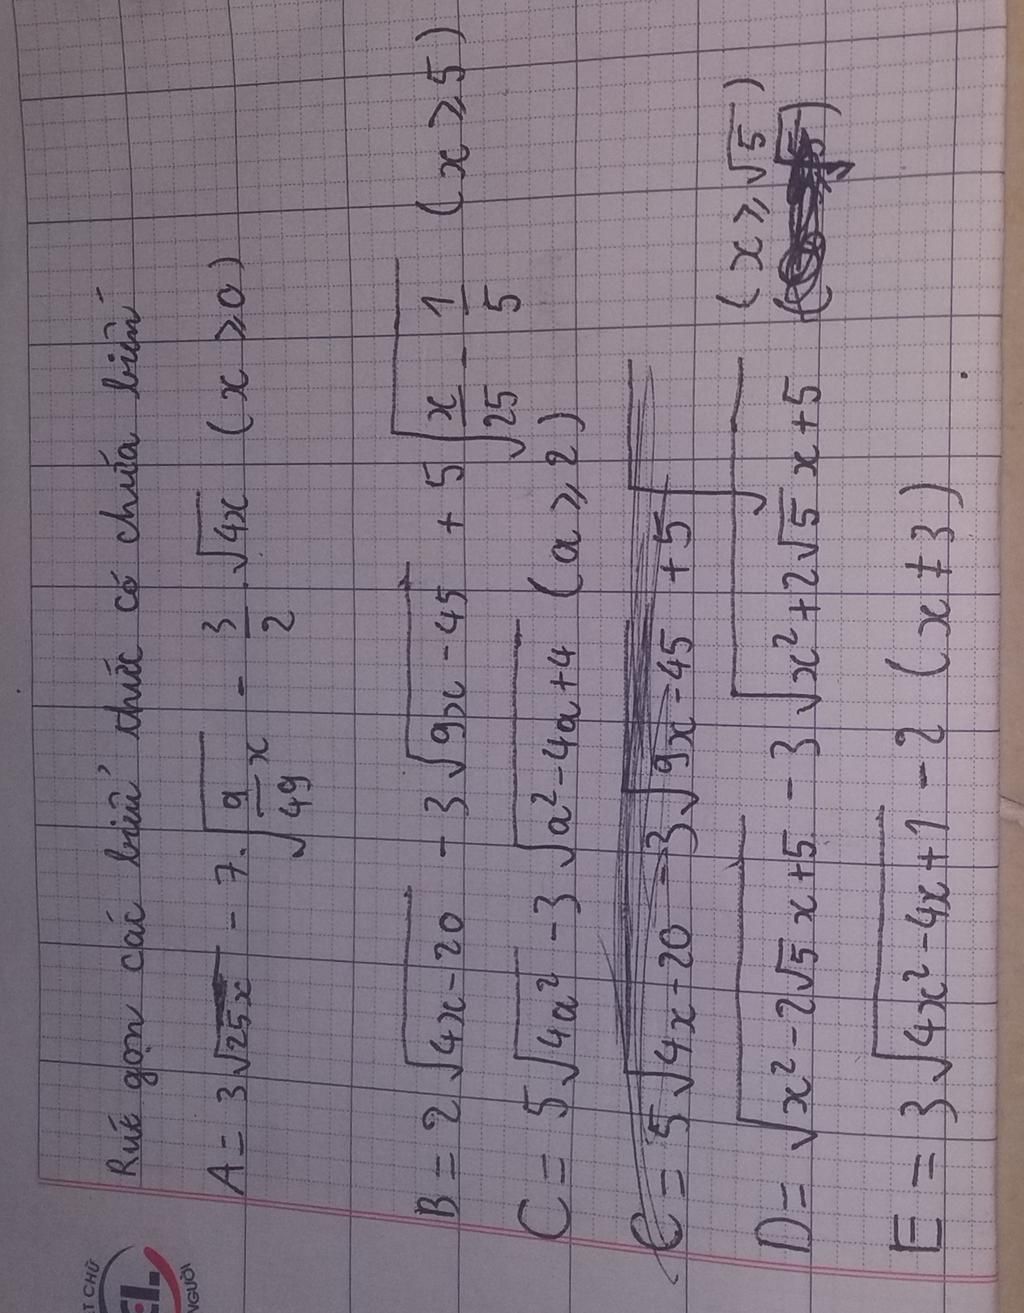 Rút gọn các biểu thức có chứa biến
A = 3√25x - 7.√(9/49 x) - 3/2.√4x (x ≥ 0)
B = 2√4x-20 - 3√9x-45 + 5√(x/25 - 1/5) (x ≥ 5)
C = 5√4a² - 3√a²-4a+4 (a ≥ 2)
C = 5√4x-20 - 3√9x-45 + 5√
D = √x²-2√5x+5 - 3√x²+2√5x+5 (x ≥ √5)
E = 3√4x²-4x+1 - 2 (x ≠ 3)
T CHỮ
EL
NGƯỜI